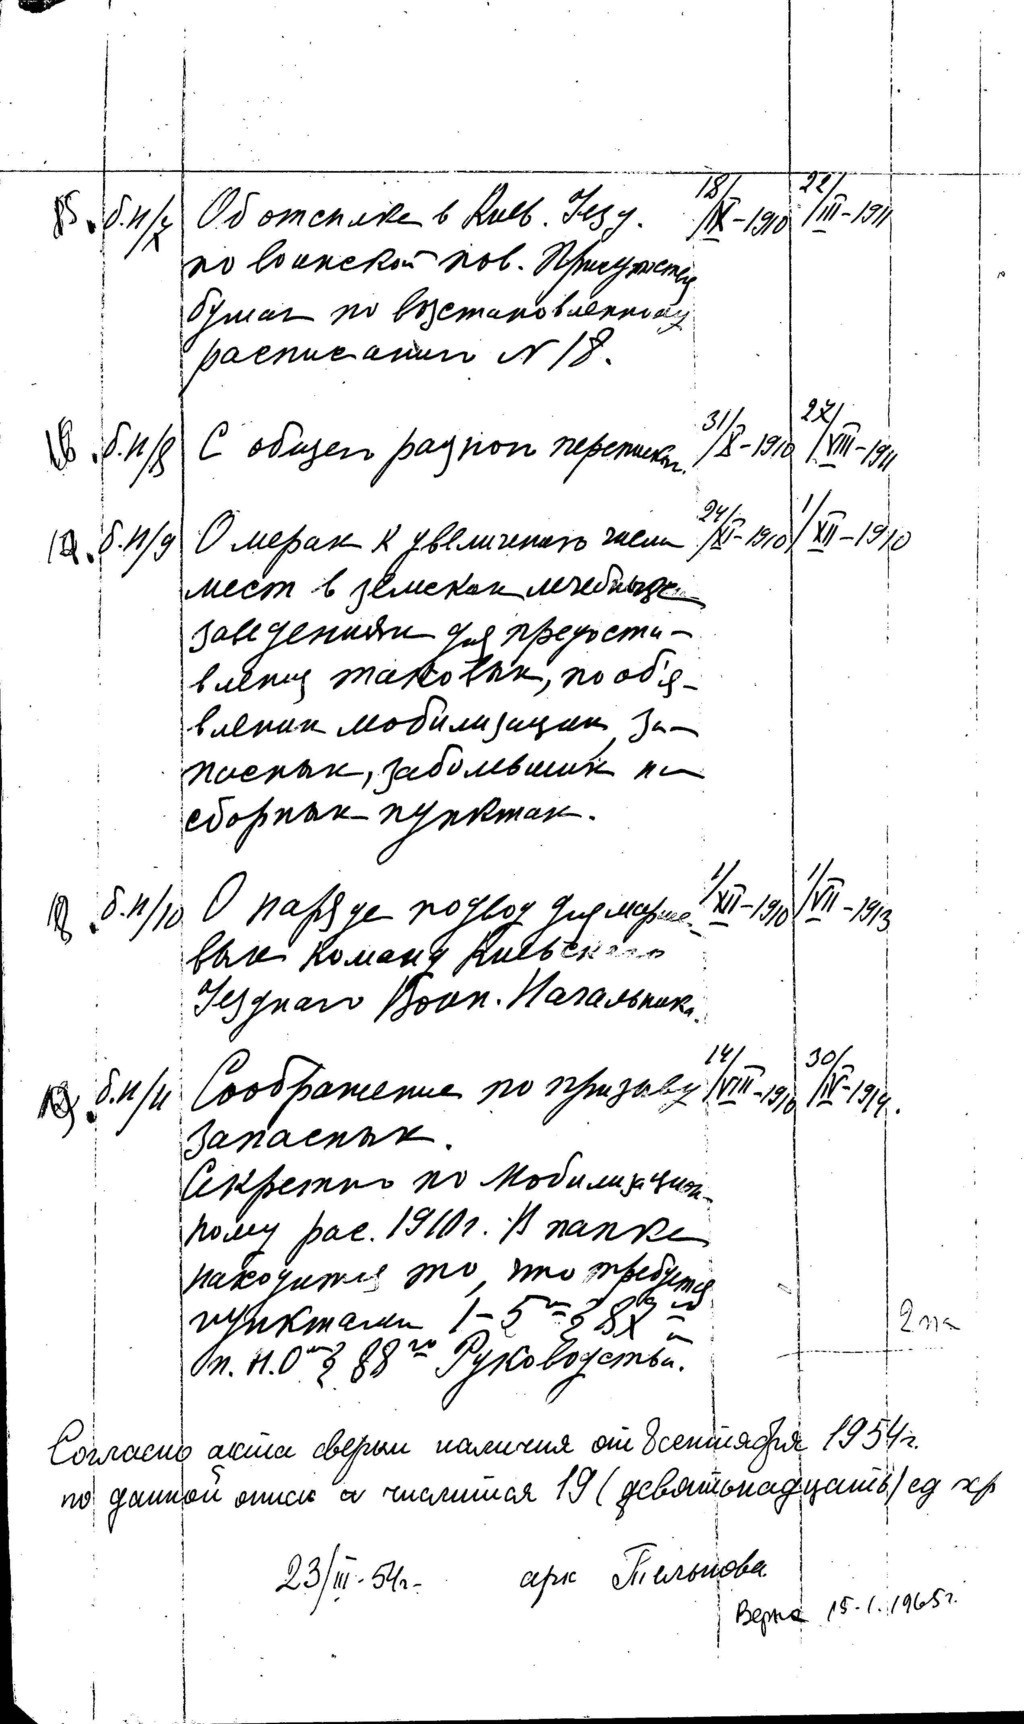 15. б.н/7 Об отсылке в Киев. Уезд. 18/IX-1910 22/III-1911
по воинской пов. Присутствие
бумаг по восстановленному
расписанию N 18.
16. б.н/8 С общей разной перепиской. 31/X-1910 27/VIII-1911
17. б.н/9 О мерах к увеличению числа 24/XI-1910 1/XII-1910
мест в земских лечебных
заведениях для предоста-
вления таковых, по объя-
влении мобилизации, за-
пасных, заболевших на
сборных пунктах.
18. б.н/10 О наряде подвод для марше- 1/XII-1910 1/VII-1913
вых команд Киевского
Уездного Воин. Начальника.
19. б.н/11 Соображение по призыву 14/VIII-1910 30/IV-1914.
запасных.
Секретно по мобилизацион-
ному рас. 1910 г. В папке
находится то, что требуется
пунктами 1-5 § 87
§ 88го Руководства.
2 па
Согласно акта сверки наличия от 8 сентября 1954 г.
по данной описи числится 19 (девятьнадцать) ед хр
23/III-54 г. арх Тельнова
Верно 15-1.1965 г.